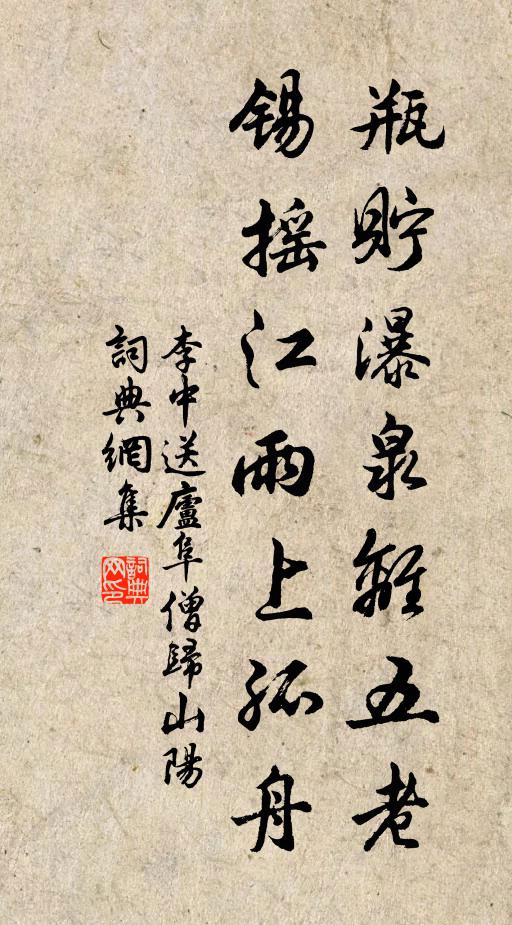 瓶貯瀑泉離五老
錫搖江雨上孤舟
李中送廬阜僧歸山陽
詞典網集
詞典网印